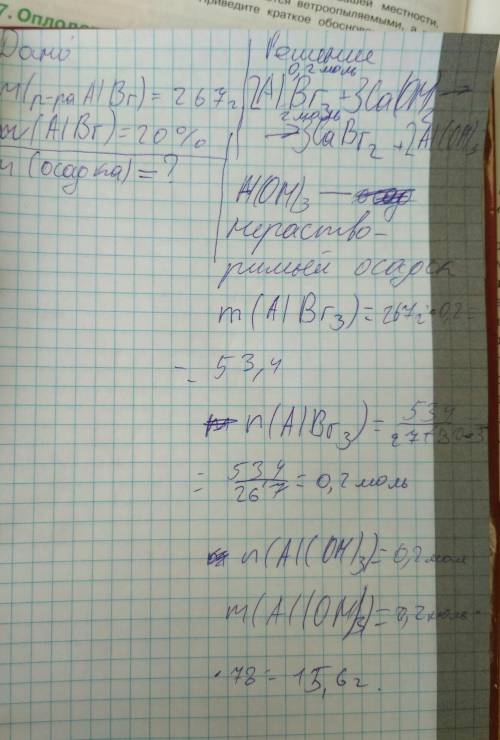 7. Оплодо
ветроопыляемыми, а
Приведите краткое обоснов
местности,
Дано
m(р-ра AlBr) = 267г
w(AlBr) = 20%
m(осадка) = ?
Решение
0,2 моль
2AlBr3 + 3Ca(OH)2 →
2 моль
→ 3CaBr2 + 2Al(OH)3
Al(OH)3 —
нераство-
римый осадок
m(AlBr3) = 267г · 0,2 =
= 53,4
n(AlBr3) = 53,4 / 27+80·3
= 53,4 / 267 = 0,2 моль
n(Al(OH)3) = 0,2 мол
m(Al(OH)3) = 0,2 моль ·
· 78 = 15,6 г.